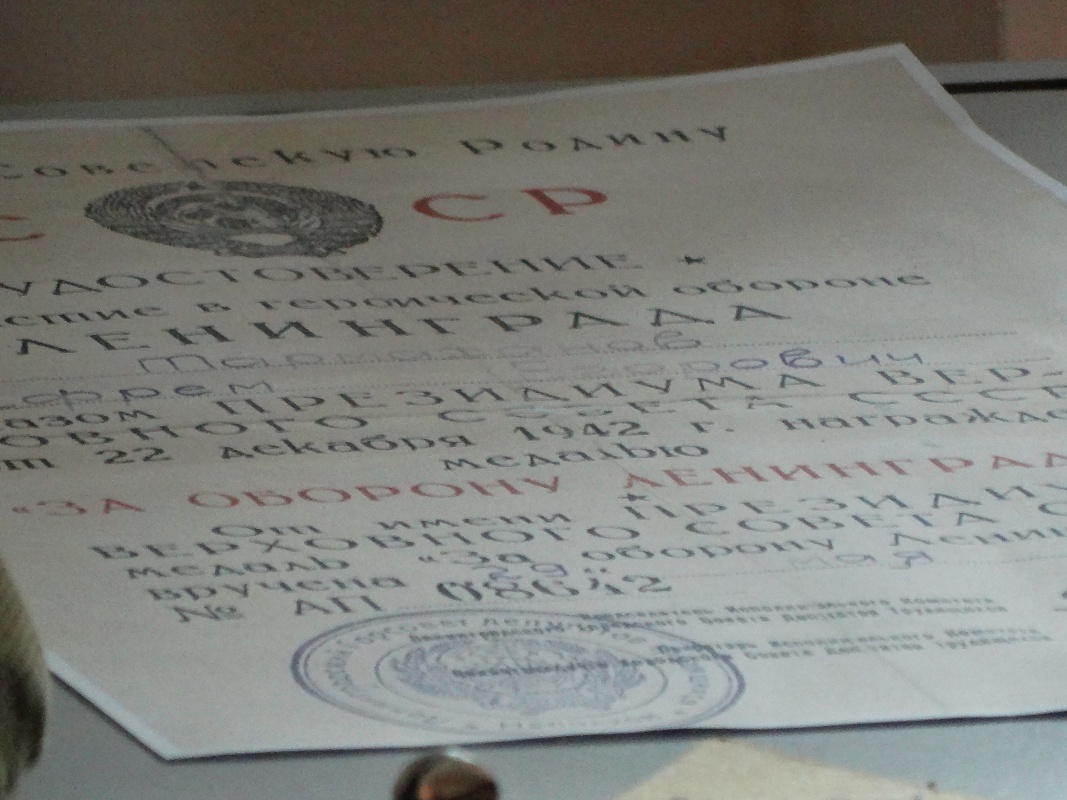 Советскую Родину
С СР
УДОСТОВЕРЕНИЕ
стие в героической обороне
ЛЕНИНГРАДА
фрем орович
азом ПРЕЗИДИУМА ВЕР-
ОВНОГО СОВЕТА СССР
т 22 декабря 1942 г. награжде
медалью
«ЗА ОБОРОНУ ЛЕНИНГРАДА
От имени ПРЕЗИДИУ
ВЕРХОВНОГО СОВЕТА С
медаль «За оборону Ленин
вручена мая
№ АП 08642
Председатель Исполнительного Комитета
Ленинградского городского Совета Депутатов Трудящихся
Секретарь Исполнительного Комитета
Ленинградского городского Совета Депутатов Трудящихся